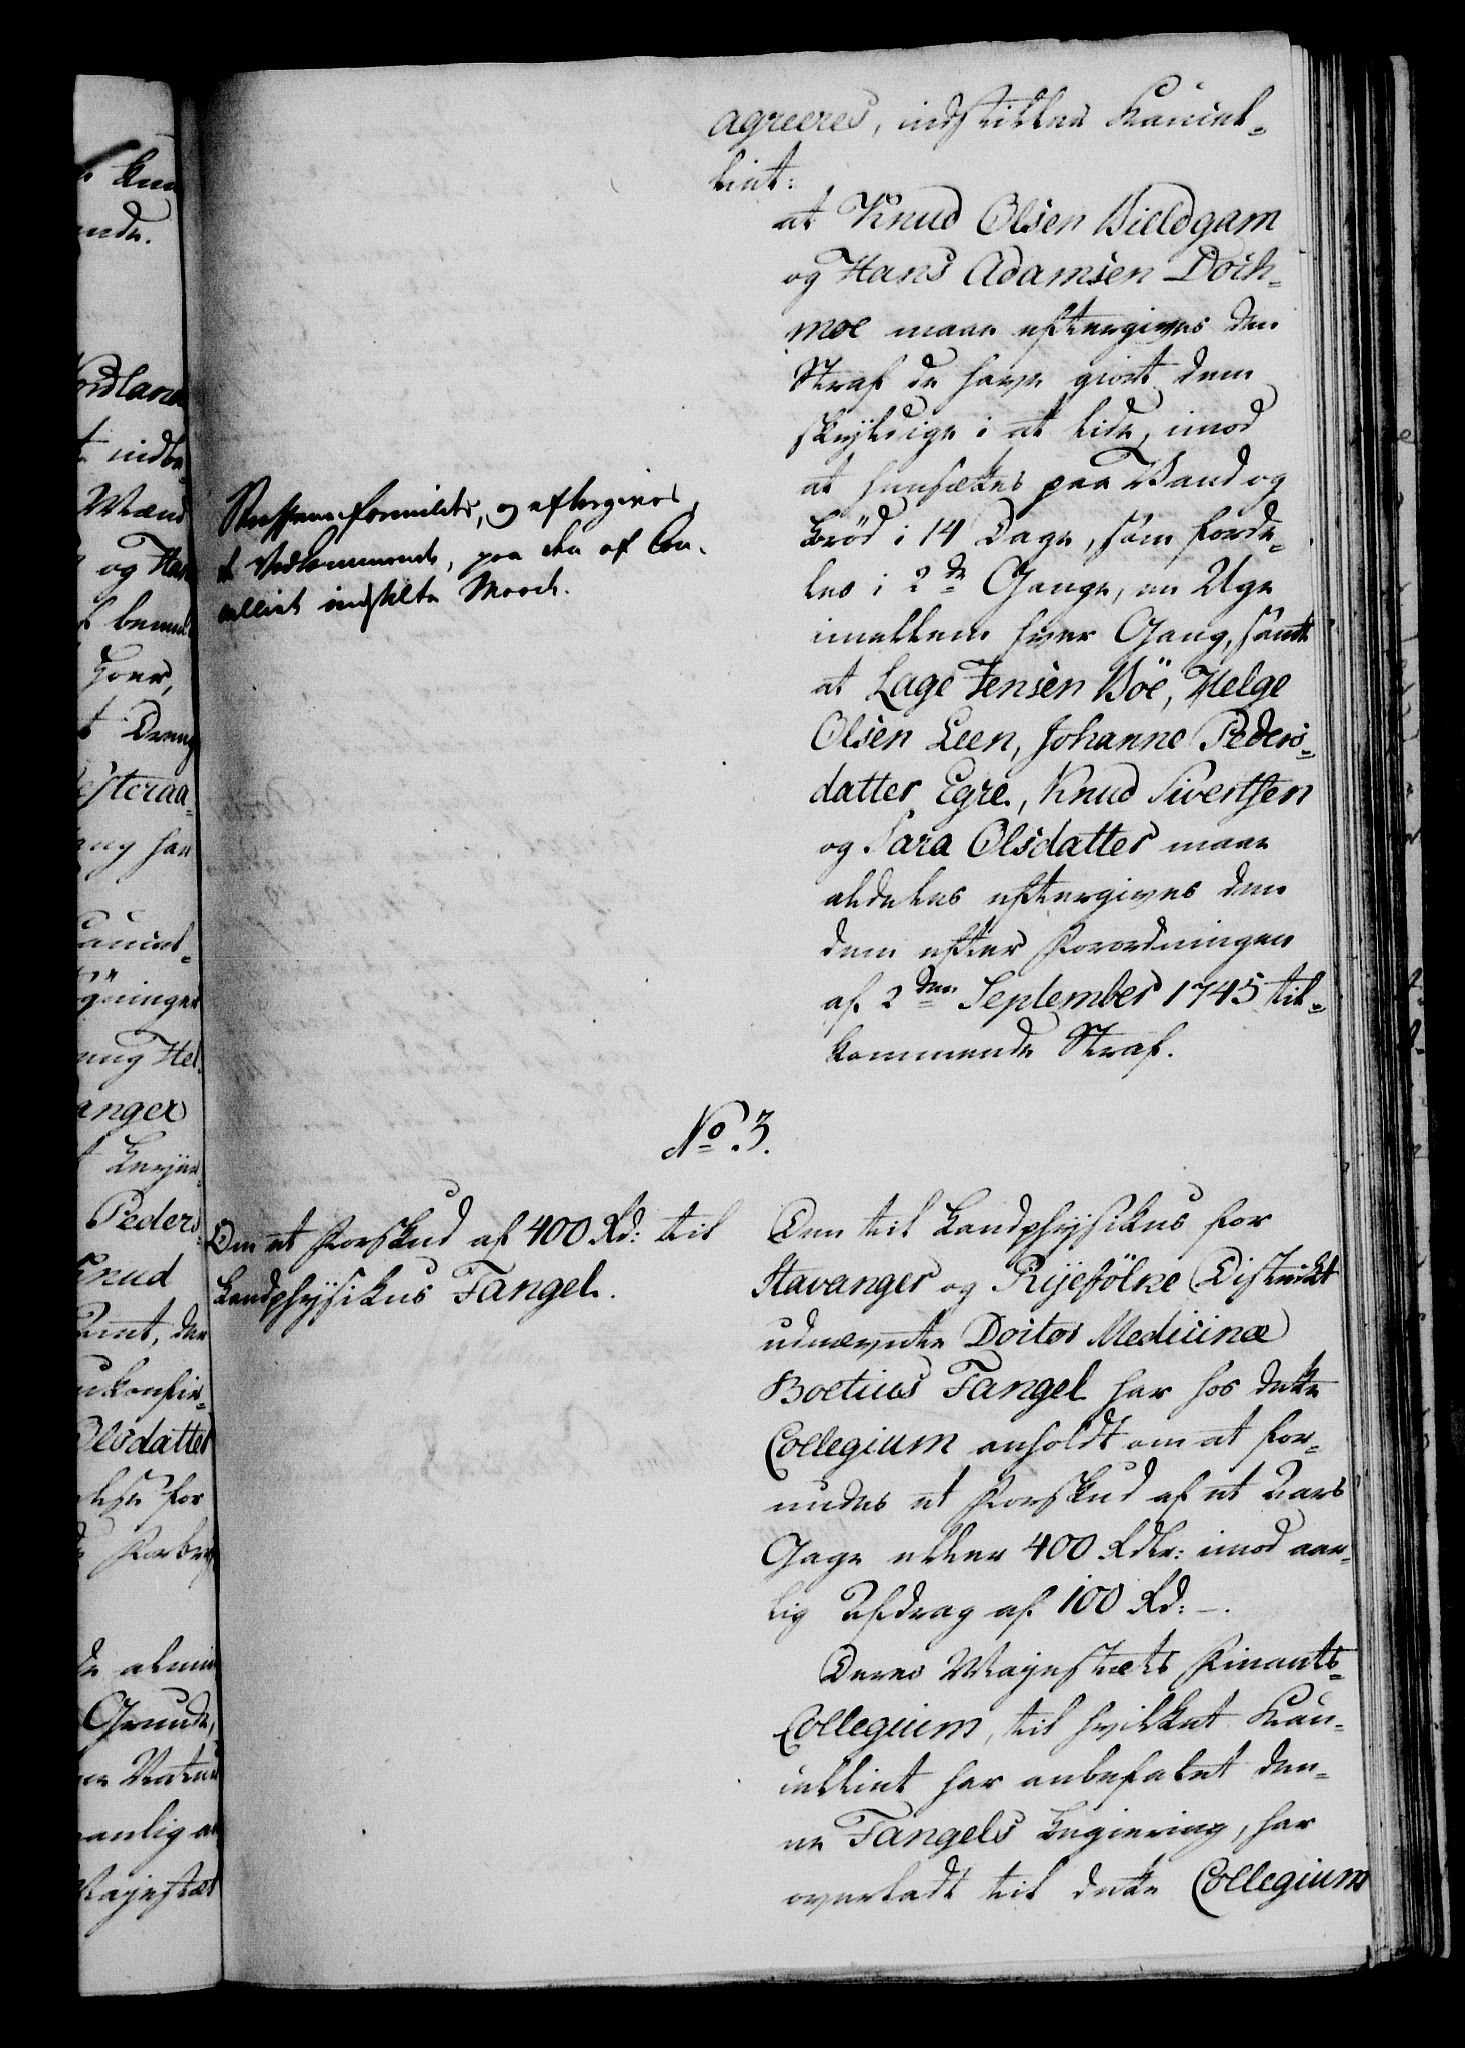 agreeres, indstilles Kancel-
liet:
at Knud Olsen Bieldgam
og Hans Adamsen Doch-
moe maae eftergives den
Straf de have giort dem
skyldige i at lide, imod
at hensættes paa Vand og
Brød i 14 Dage, som forde-
les i 2de Gange, en Uge
imellem hver Gang, samt
at Lage Jensen Böe, Helge
Olsen Leen, Johanne Peders-
datter Egre, Knud Sivertsen
og Sara Olsdatter maae
aldeles eftergives den
dem efter Forordningen
af 2den September 1745 til-
kommende Straf.
Straffene formildes, og eftergives
Vedkommende, paa den af Can-
celliet indstilte Maade.
No. 3.
Om et Forskud af 400 Rd: til
Landphysikus Fangel.
Den til Landphysikus for
Stavanger og Ryefölke District
udnævnte Doctor Medicinæ
Boetius Fangel har hos dette
Collegium anholdt om at for-
undes et Forskud af et Aars
Gage eller 400 Rdlr: imod aar-
lig Afdrag af 100 Rd: -.
Deres Majestæts Finants-
Collegium, til hvilket Kan-
celliet har anbefalet den-
ne Fangels Begiering, har
overladt til dette Collegium